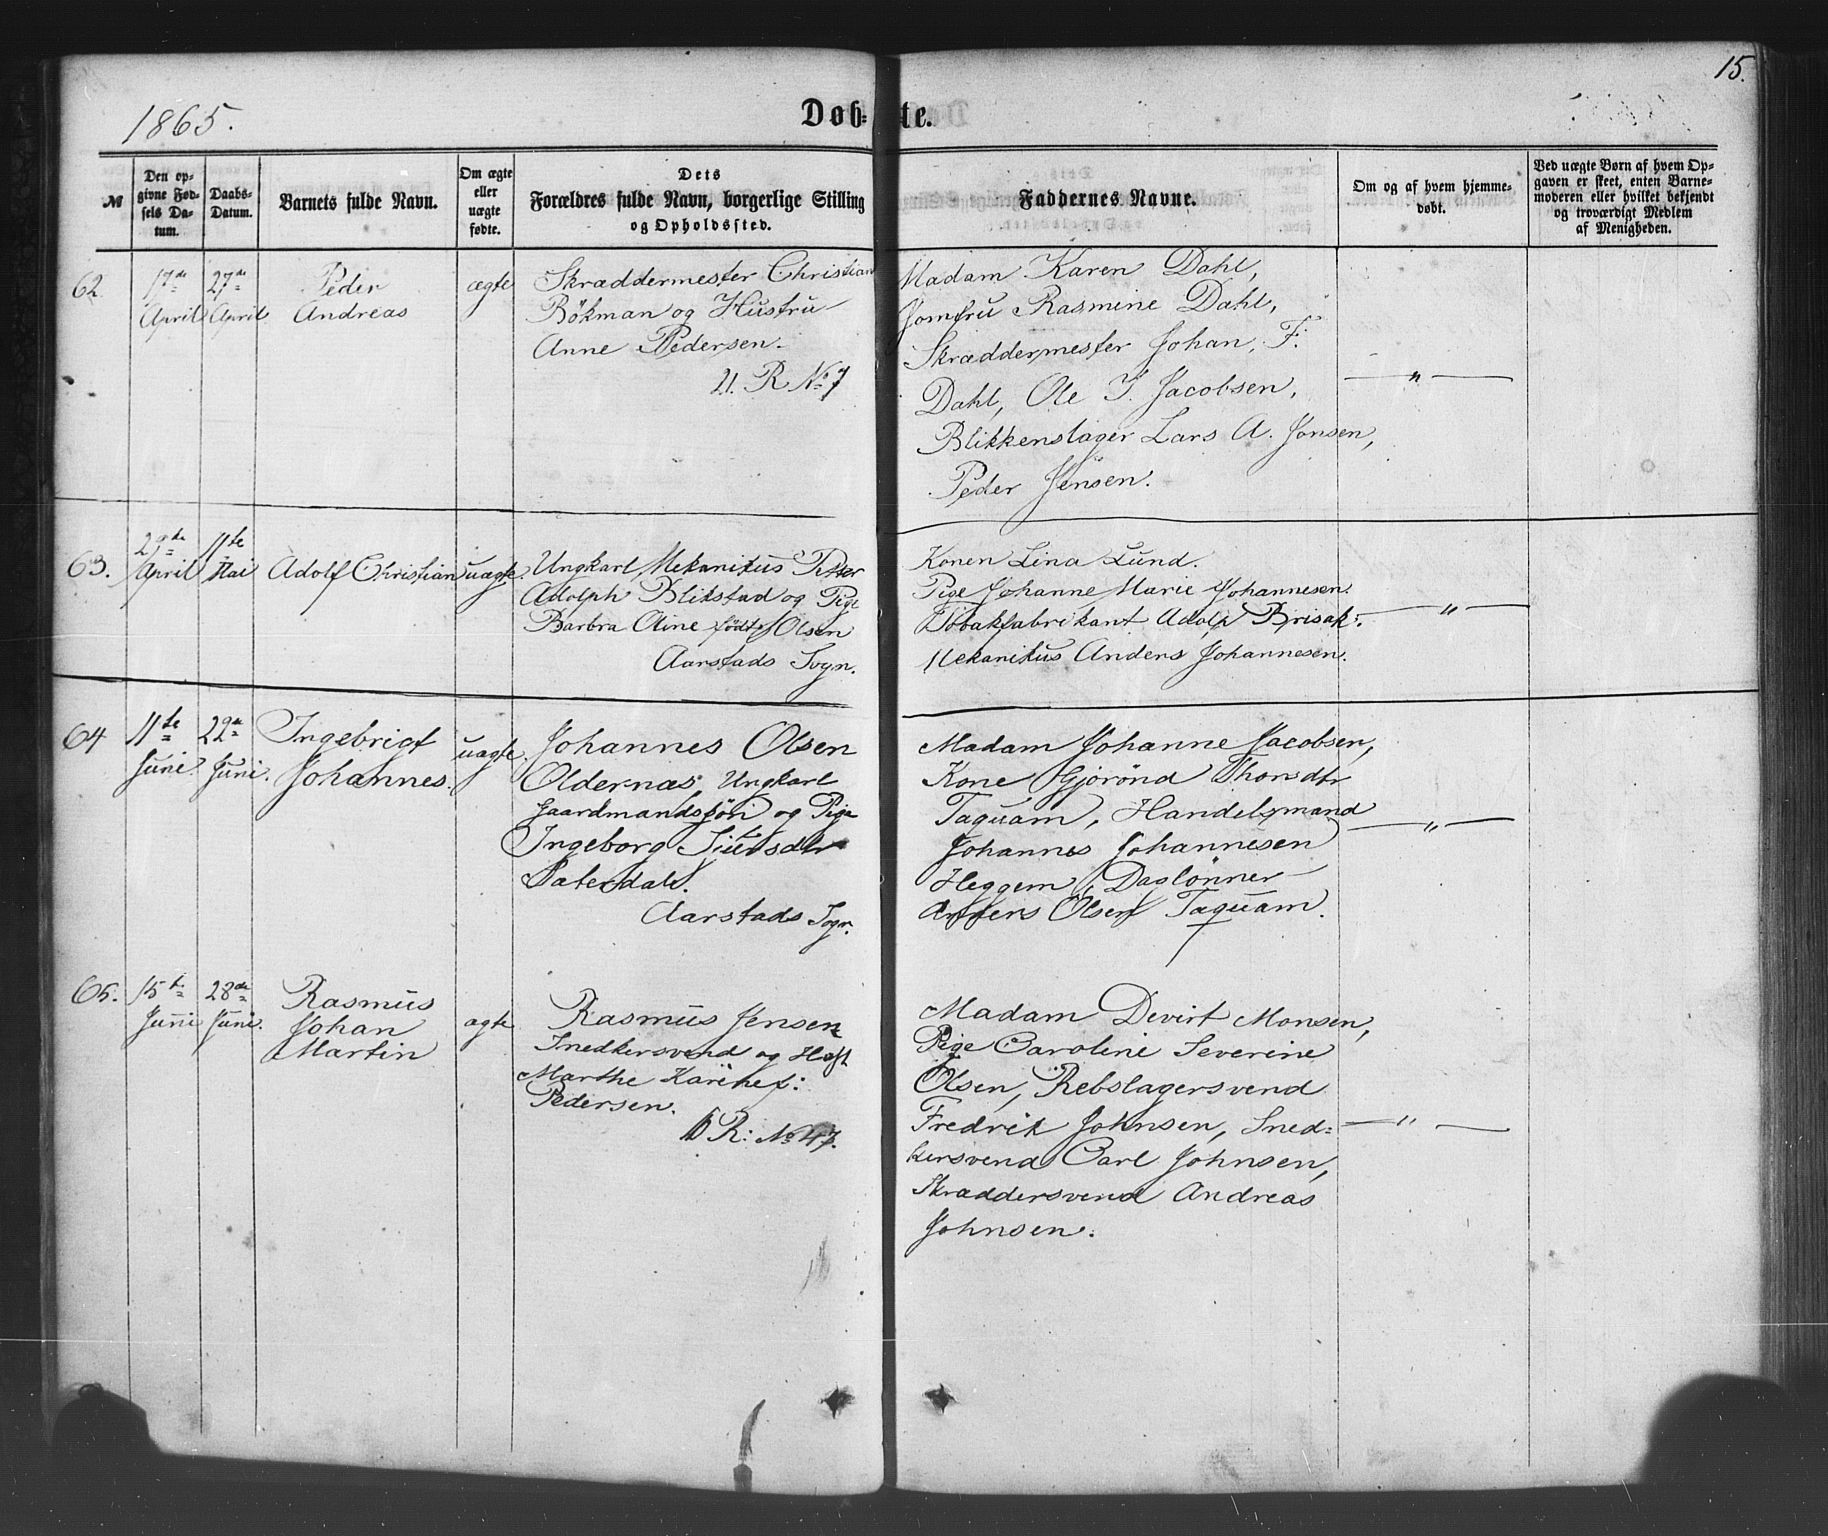 15.
1865.
Døb-te.
№
Den opgivne Fødsels Datum.
Daabs-Datum.
Barnets fulde Navn.
Om ægte eller uægte fødte.
Dets
Forældres fulde Navn, borgerlige Stilling
og Opholdssted.
Faddernes Navne.
Om og af hvem hjemme-
døbt.
Ved uægte Børn af hvem Op-
gaven er skeet, enten Barne-
moderen eller hvilket bekjendt
og troværdigt Medlem
af Menigheden.
62
17de April
27de April
Peder
Andreas
ægte
Skræddermester Christian
Bökman og Hustru
Anne Pedersen.
21. R No 7
Madam Karen Dahl,
Jomfru Rasmine Dahl,
Skræddermester Johan. F.
Dahl, Ole I. Jacobsen,
Blikkenslager Lars A. Jonsen,
Peder Jensen.
— " —
63.
April
11te Mai
Adolf Christian
uægte.
Ungkarl, Mekanikus Petter
Adolph Blikstad og Pige
Barbra Oline født Olsen
Aarstads Sogn.
Konen Lina Lund.
Pige Johanne Marie Johannesen.
Tobakfabrikant Adolp Brisak.
Mekanikus Anders Johannesen.
— " —
64
11te Juni.
22de Juni.
Ingebrigt
Johannes.
uægte.
Johannes Olsen
Oldernæs, Ungkarl
Gaardmandssøn og Pige
Ingeborg Siversdtr
Aarstads Sogn.
Madam Johanne Jacobsen,
Kone Gjörönd Thorsdtr
Taquam, Handelsmand
Johannes Johannesen
Heggem, Daglönner
Anders Olsen Taquam.
— " —
65.
15de Juni
28de Juni.
Rasmus
Johan
Martin
ægte
Rasmus Jensen
Snedkersvend og Hust
Marthe Karine f:
Pedersen.
R: No 47.
Madam Devirt Monsen,
Pige Caroline Severine
Olsen, Rebslagersvend
Fredrik Johnsen, Sned-
kersvend Carl Johnsen,
Skræddersvend Andreas
Johnsen.
— " —